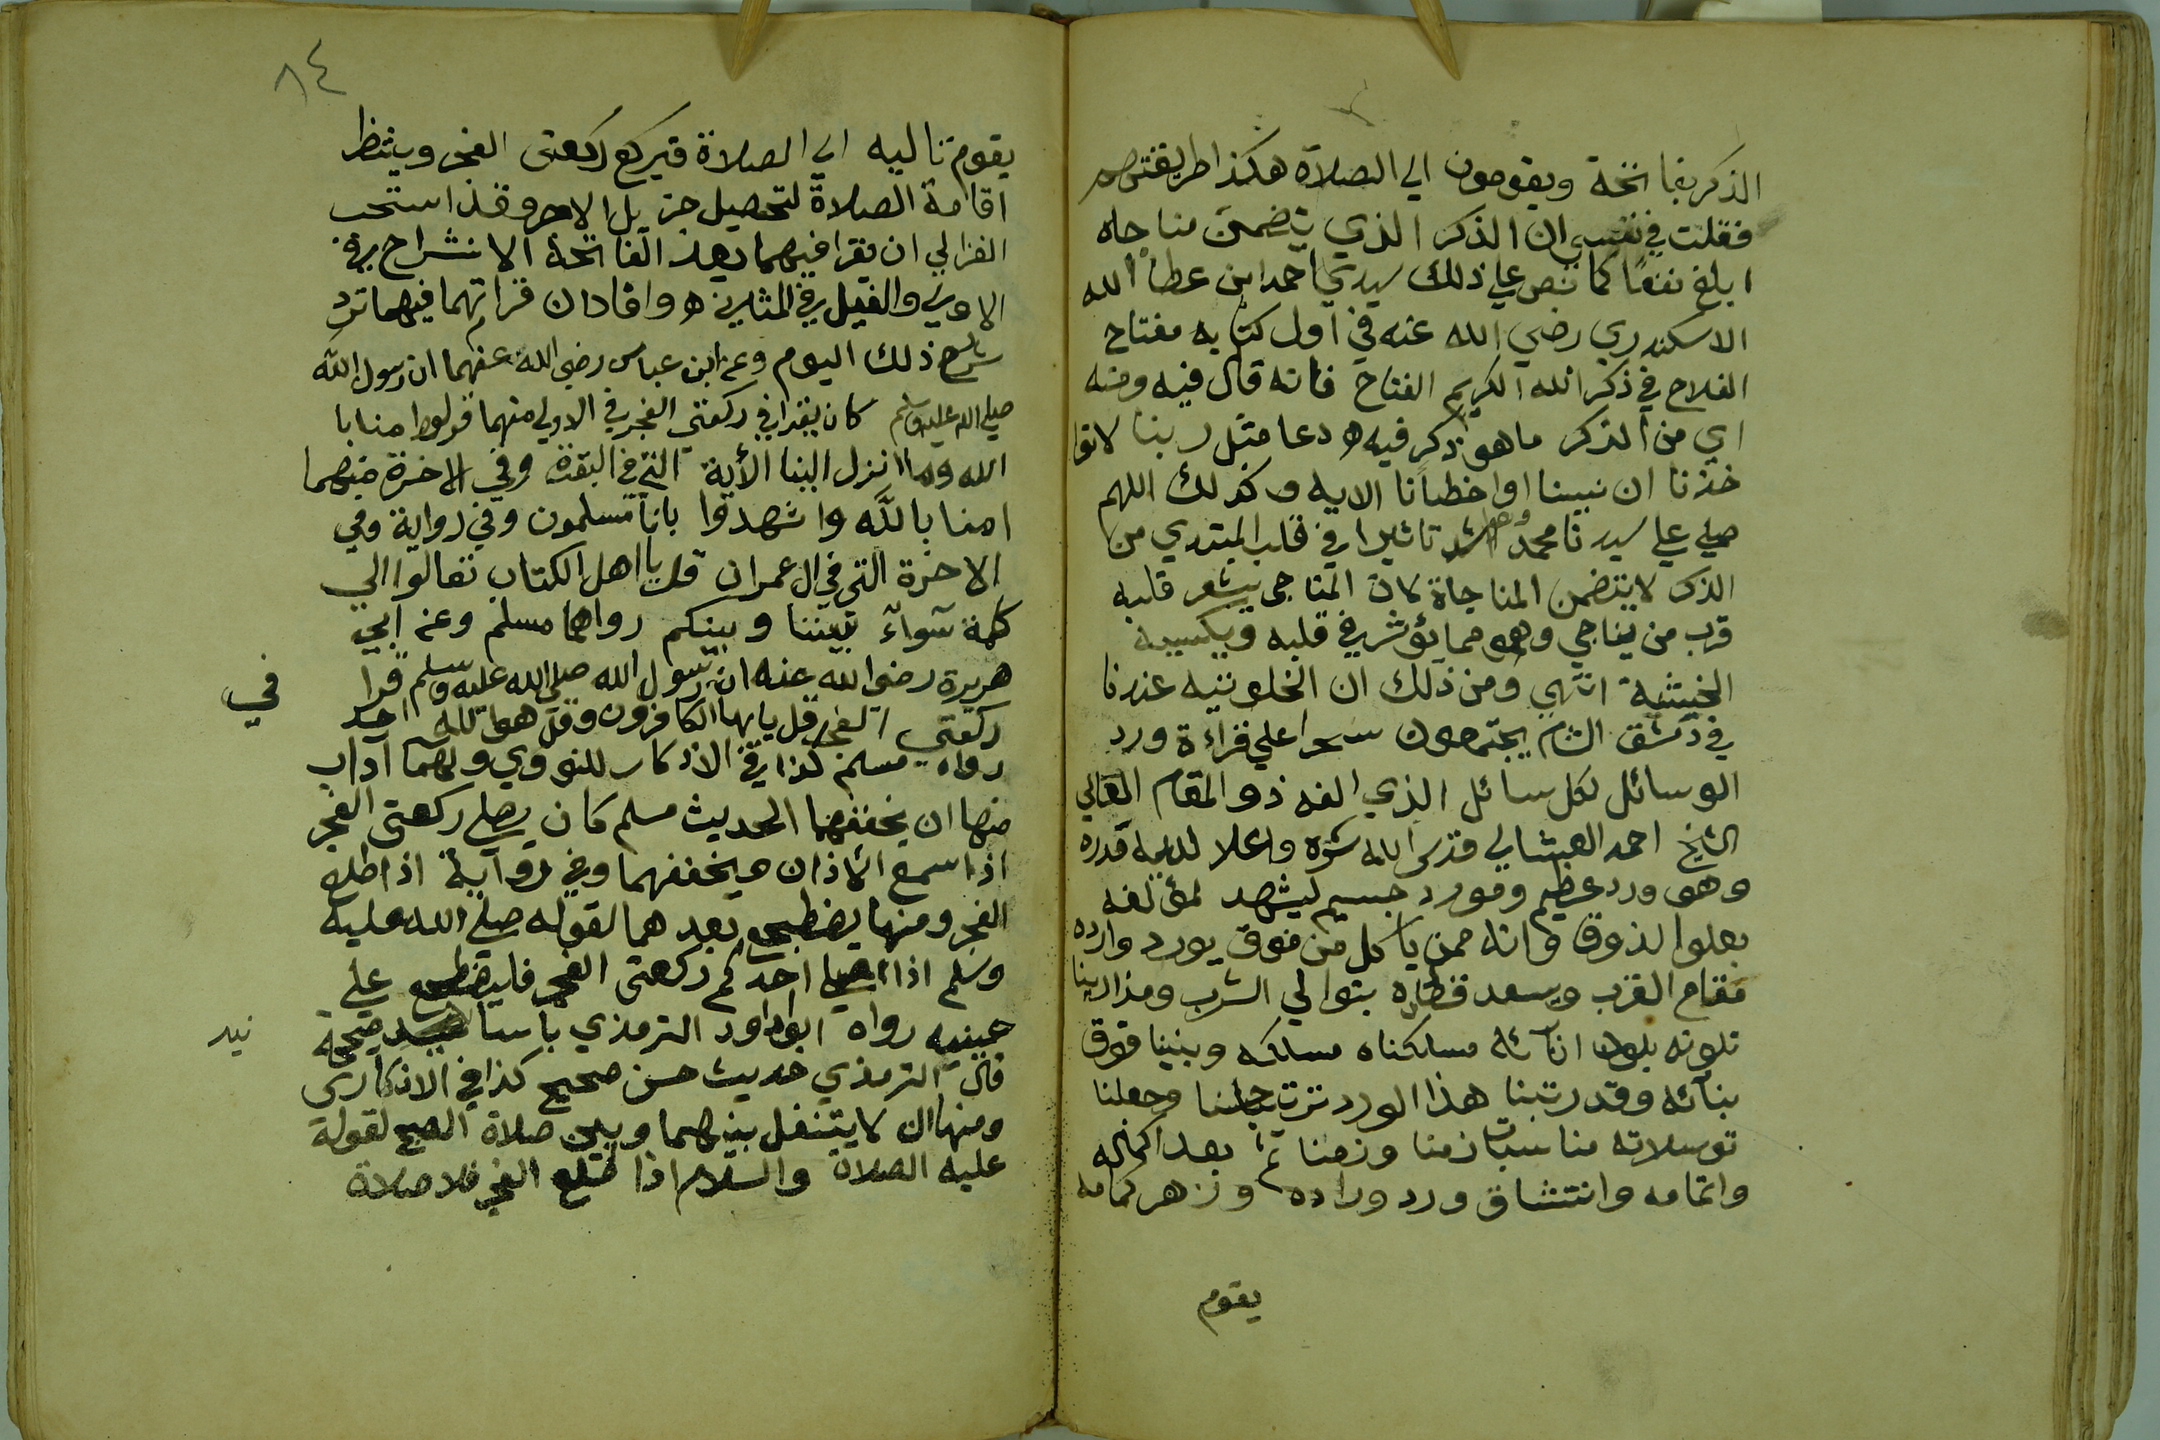 الذكر بفاتحة ويقومون الي الصلاة هكذا طريقتهم
فقلت في نفسي ان الذكر الذي يتضمن مناجاه
ابلغ نفعا كما نص علي ذلك سيدي احمد ابن عطا الله
الاسكندري رضي الله عنه في اول كتابه مفتاح
الفلاح في ذكر الله الكريم الفتاح فانه قال فيه ومنه
اي من الذكر ما هو ذكر فيه دعا مثل ربنا لاتوا
خذنا ان نسينا او اخطأنا الايه وكذلك اللهم
صلي علي سيدنا محمد وهو اشد تاثيرا في قلب المبتدي من
الذكر لا يتضمن المناجاة لان المناجي يشعر قلبه
قرب من يناجي وهو مما يؤثر في قلبه ويكسيه
الخشية انتهي ومن ذلك ان الخلوتيه عندنا
في دمشق الشام يجتمعون سحرا علي قراءة ورد
الوسائل لكل سائل الذي الفه ذو المقام العالي
الشيخ احمد العسالي قدس الله سره واعلا لديه قدره
وهو ورد عظيم ومورد جسيم ليشهد لمؤلفه
بعلوا لذوق وانه ممن ياكل من فوق يورد وارده
مقام القرب ويسعد بتوالي الشرب ومذ ادينا
تلوته مسلكناه مسلكه وبنينا فوق
بنائه وقد رتبنا هذا الورد وجعلنا
توسلاته مناسبات زمنا وزمنا ثم بعد اكماله
واتمامه وانتشاق ورد وراده وزهر كمامه
يقوم
٨٤
يقوم تاليه الي الصلاة فيركع ركعتي الفجر وينتظر
اقامة الصلاة لتحصيل جزيل الاجر وقد استحب
الغزالي ان يقرا فيهما بعد الفاتحة الانشراح في
الاولي والفيل في الثانيه وافاد ان قراتهما فيهما ترد
شر ذلك اليوم وعن ابن عباس رضي الله عنهما ان رسول الله
صلي الله عليه وسلم كان يقرا في ركعتي الفجر في الاولي منهما قولوا امنا با
الله وما انزل الينا الأية التي في البقرة وفي الاخرة منهما
امنا بالله واشهدوا بانا مسلمون وفي رواية وفي
الاخرة التي في ال عمران قل يا اهل الكتاب تعالوا الي
كلمة سوآء بيننا وبينكم رواهما مسلم وعن ابي
هريرة رضي الله عنه ان رسول الله صلي الله عليه وسلم قرا في
ركعتي الفجر قل يا يها الكافرون وقل هو الله احد
رواه مسلم كذا في الاذكار للنووي ولهما آداب
منها ان يخففهما لحديث مسلم كان يصلي ركعتي الفجر
اذا سمع الاذان ويخففهما وفي رواية اذا طلع
الفجر ومنها يضطجع بعد هما لقوله صلي الله عليه
وسلم اذا صلي احدكم ركعتي الفجر فليضطجع علي
يمينه رواه ابو داود الترمذي باسانيد صحيحة
نيد
قال الترمذي حديث حسن صحيح كذا في الاذكار
ومنها ان لا يتنفل بينهما وبين صلاة الصبح لقوله
عليه الصلاة والسلام اذا طلع الفجر فلا صلاة